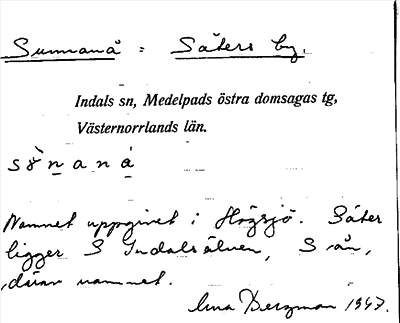 Sunnanå = Säters by.
Indals sn, Medelpads östra domsagas tg,
Västernorrlands län.
Namnet uppgivet i Högsjö. Säter
ligger S Indalsälven, S ån,
därav namnet.
Bergman 1947.